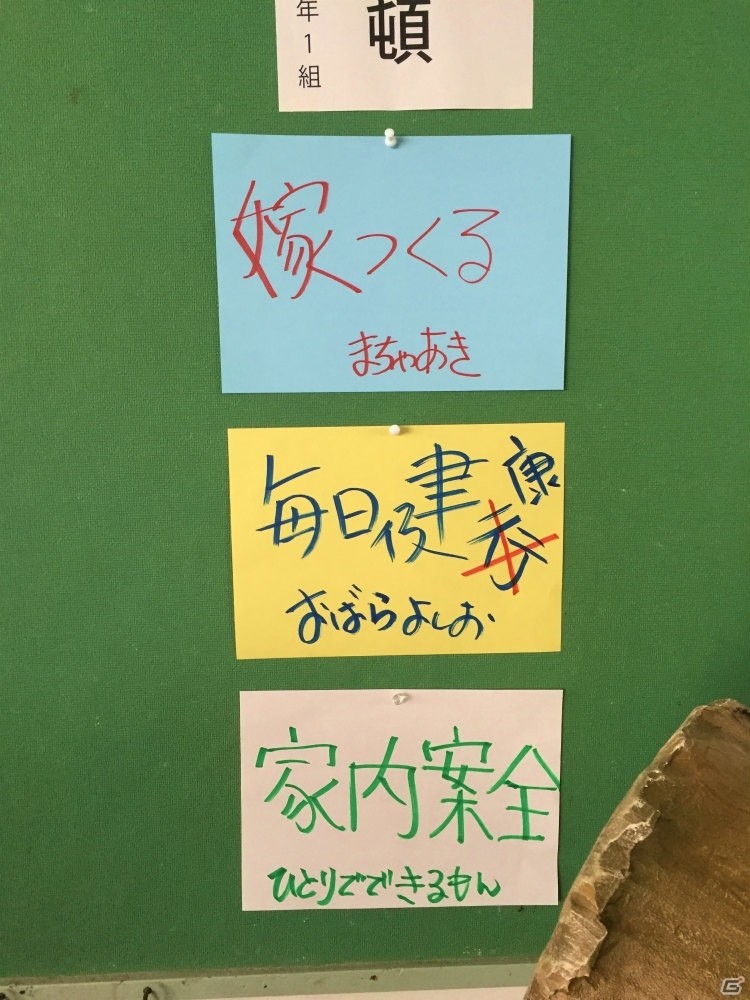 年1組
頓
嫁つくる
まちゃあき
毎日健康
おばらよしお
家内案全
ひとりでできるもん